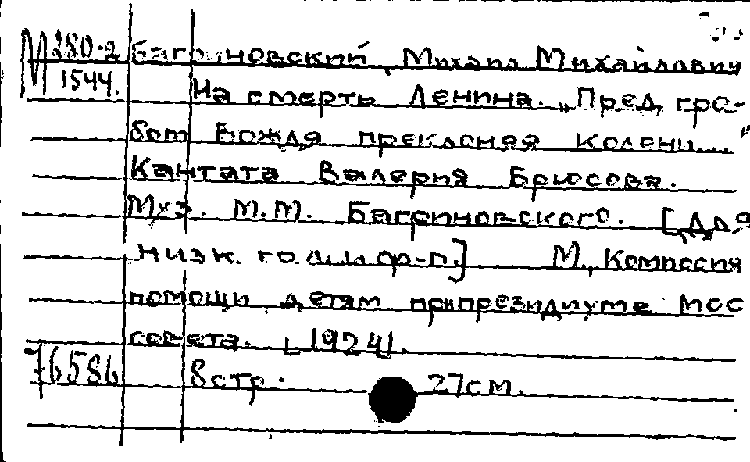 М 280-2 Багриновский, Михаил Михайлович
1544. На смерть Ленина. "Пред гро-
бом вождя преклоняя колени..."
Кантата Валерия Брюсова.
Муз. М.М. Багриновского. [Для
низк. гол. и ф-п.] М., Комиссия
помощи детям при президиуме Мос
совета. [1924].
76586 8 стр. 27 см.